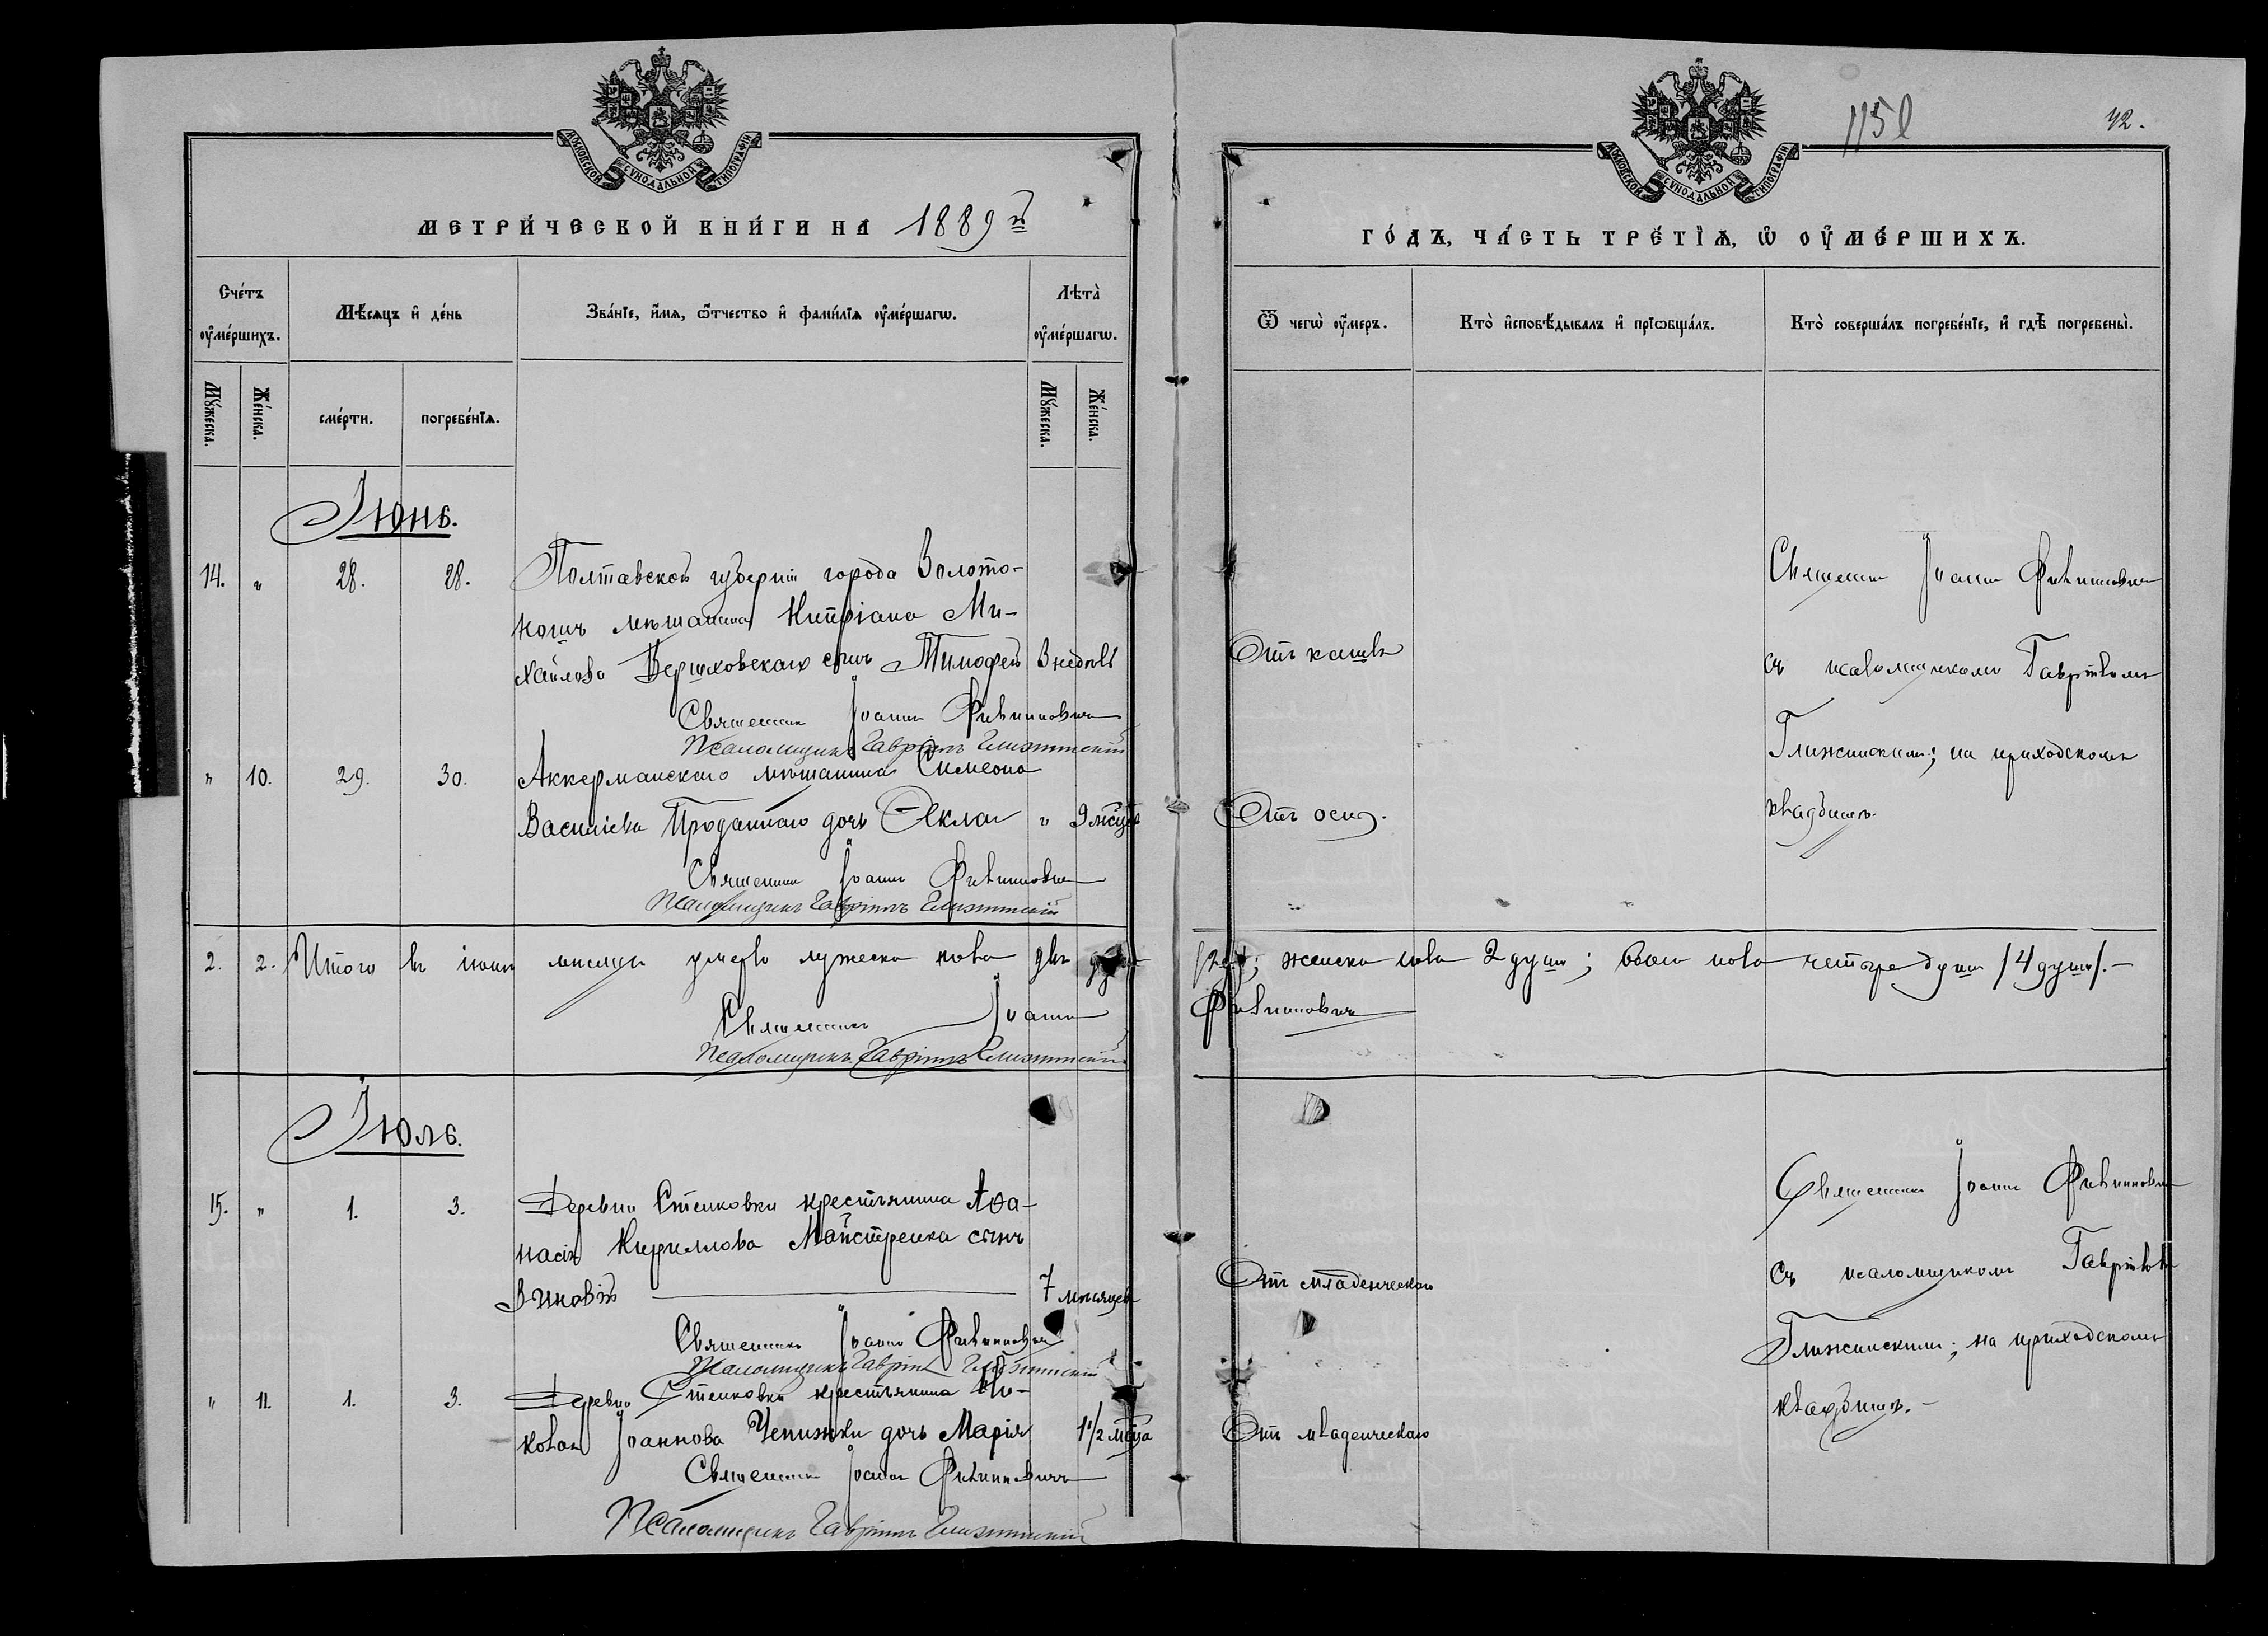 МОСКОВСКОЙ СѴНОДАЛЬНОЙ ТИПОГРАФІИ
МЕТРИ́ЧЕСКОЙ КНИ́ГИ НА 1889й
Сче́тъ ᲂу҆ме́ршихъ.
Мѣ́сѧцъ и҆ де́нь
Зва́нїе, и҆́мѧ, ѻ҆́тчество и҆ фами́лїѧ ᲂу҆ме́ршагѡ.
Лѣ́та ᲂу҆ме́ршагѡ.
Мꙋ́жеска.
Же́нска.
сме́рти.
погребе́нїѧ.
Мꙋ́жеска.
Же́нска.
Іюнь.
14. " 28. 28. Полтавской губерніи города Золото-
ноши мѣщанина Кипріана Ми-
хайлова Вершховскаго сынъ Тимофей 3 недѣль
Священникъ Іоаннъ Филипповичъ
Псаломщикъ Гавріилъ Глижинскій
" 10. 29. 30. Аккерманскаго мѣщанина Симеона
Василіева Проданнаго дочь Ѳекла " 9 мѣсяц
Священникъ Іоаннъ Филипповичъ
Псаломщикъ Гавріилъ Глижинскій
2. 2. Итого въ іюнѣ мѣсяцѣ умерло мужеска пола двѣ
Священникъ Іоаннъ
Псаломщикъ Гавріилъ Глижинскій
Іюль.
15. " 1. 3. Деревни Стенковки крестьянина Аѳа-
насія Кириллова Майстренка сынъ
Зиновій 7 мѣсяцевъ
Священникъ Іоаннъ Филипповичъ
Псаломщикъ Гавріилъ Глижинскій
" 11. 1. 3. Деревни Стенковки крестьянина Ни-
колая Іоаннова Чепижки дочь Марія 1 1/2 мѣца
Священникъ Іоаннъ Филипповичъ
Псаломщикъ Гавріилъ Глижинскій
42.
МОСКОВСКОЙ СѴНОДАЛЬНОЙ ТИПОГРАФІИ
ГО́ДЪ, ЧА́СТЬ ТРЕ́ТЇѦ, Ѡ҆ ОУ҆МЕ́РШИХЪ.
Ѿ чегѡ̀ ᲂу҆́меръ.
Кто̀ и҆сповѣ́дывалъ и҆ прїѡбща́лъ.
Кто̀ соверша́лъ погребе́нїе, и҆ гдѣ̀ погребены̀.
Священникъ Іоаннъ Филипповичъ
Отъ кашля
съ псаломщикомъ Гавріиломъ
Глижинскимъ; на приходскомъ
Отъ оспы.
кладбищѣ.
женска пола 2 души; обоего пола четыре души /4 души/.-
Филипповичъ
Священникъ Іоаннъ Филипповичъ
Отъ младенческаго
съ псаломщикомъ Гавріиломъ
Глижинскимъ; на приходскомъ
кладбищѣ.-
Отъ младенческаго